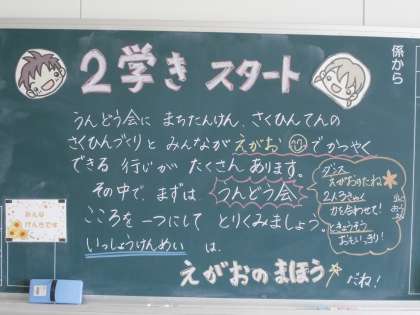 2学き スタート
係から
うんどう会に まちたんけん、さくひんてんの
さくひんづくりと みんなが えがお でかつやく
できる 行じが たくさん あります。
その中で、まずは うんどう会
こころを 一つにして とりくみましょう。
いっしょうけんめい は、
えがおのまほう だね!
ダンス
えがおのたね
力を合わせて!
ときょうそう
おもいっきり!